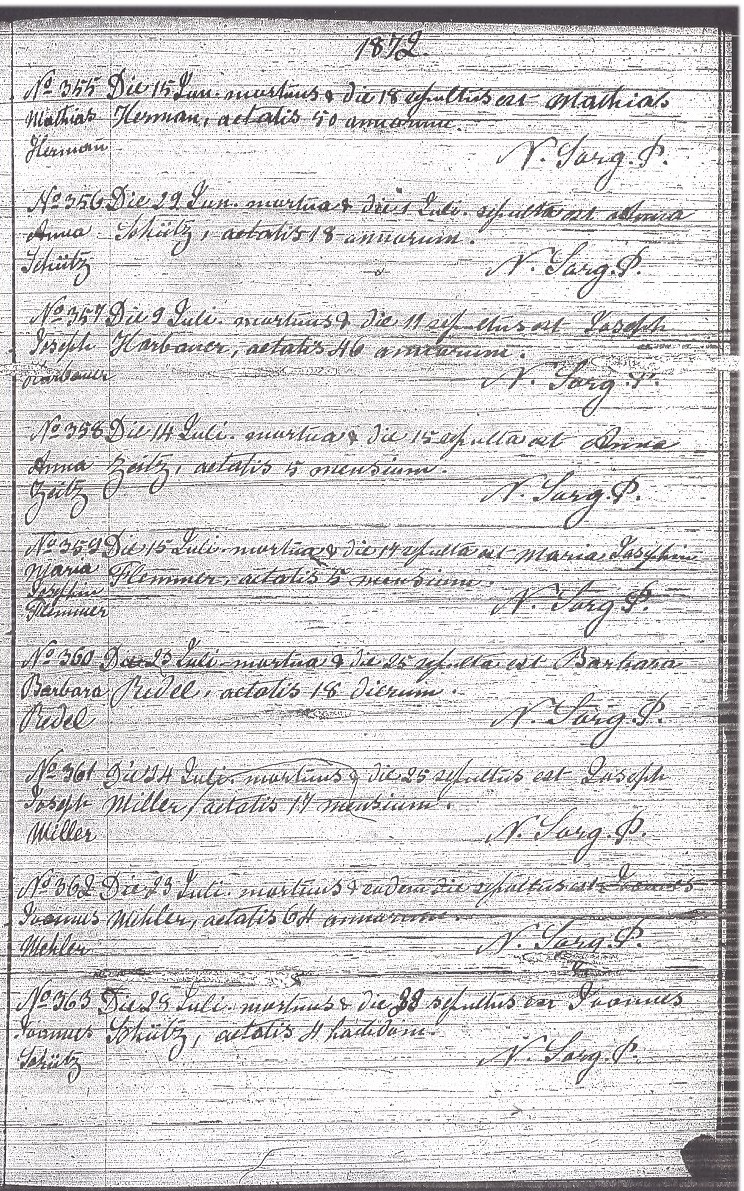 1872.
No 355 Die 15 Jun. mortuus & die 18 sepultus est Mathias
Mathias Herman, aetatis 50 annorum.
Herman
N. Sorg. P.
No 356 Die 29 Jun. mortua & die 1 Juli. sepulta est Anna
Anna Schütz, aetatis 18 annorum.
Schütz
N. Sorg. P.
No 357 Die 9 Juli. mortuus & die 11 sepultus est Joseph
Joseph Harbauer, aetatis 46 annorum.
Harbauer
N. Sorg. P.
No 358 Die 14 Juli. mortua & die 15 sepulta est Anna
Anna Zeitz, aetatis 5 mensium.
Zeitz
N. Sorg. P.
No 359 Die 15 Juli. mortua & die 17 sepulta est Maria Josephin
Maria Flemmer, aetatis 5 mensium.
Josephin
Flemmer
N. Sorg P.
No 360 Die 23 Juli. mortua & die 25 sepulta est Barbara
Barbara Redel, aetatis 18 dierum.
Redel
N. Sorg. P.
No 361 Die 24 Juli. mortuus & die 25 sepultus est Joseph
Joseph Miller, aetatis 17 mensium.
Miller
N. Sorg. P.
No 362 Die 23 Juli. mortuus & eodem die sepultus est Joannes
Joannes Mehler, aetatis 64 annorum.
Mehler
N. Sorg. P.
No 363 Die 28 Juli. mortuus & die sepultus est Joannes
Joannes Schütz, aetatis 4
Schütz
N. Sorg. P.